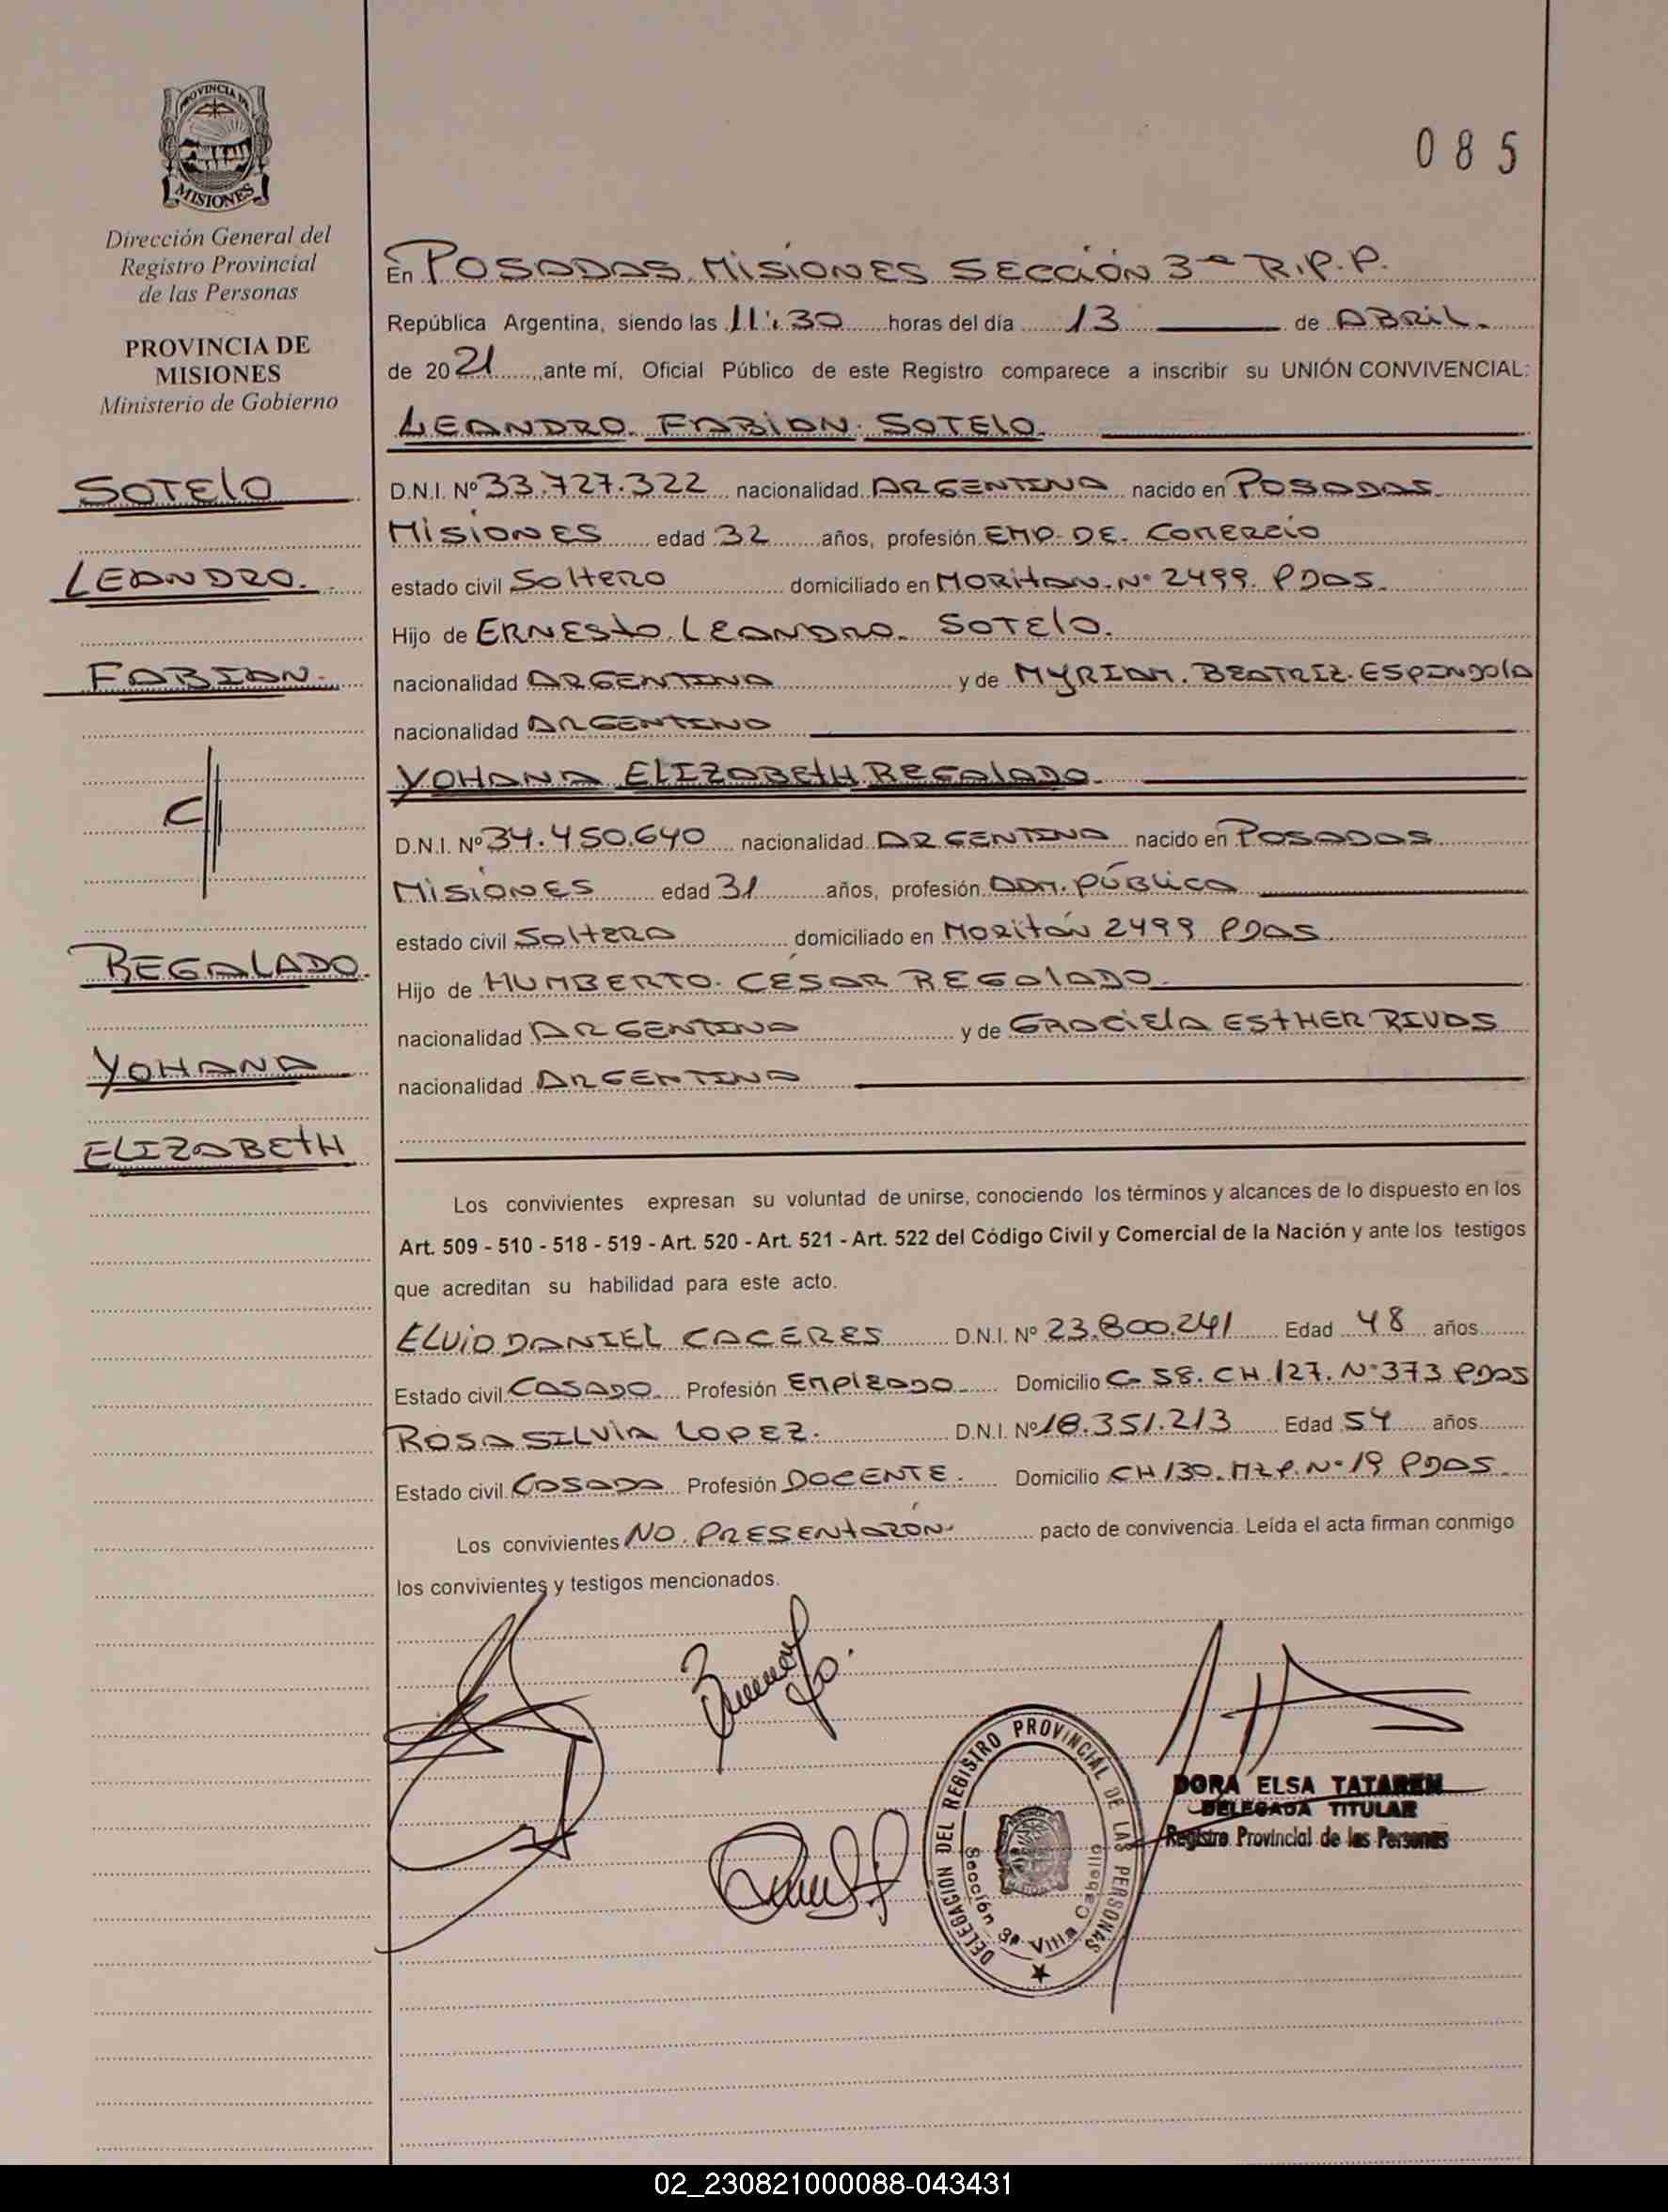 PROVINCIA DE
MISIONES
Dirección General del
Registro Provincial
de las Personas
PROVINCIA DE
MISIONES
Ministerio de Gobierno
SOTELO
LEANDRO.
FABIAN.
C//
REGALADO.
YOHANA
ELIZABETH
085
En POSADAS. MISIONES SECCIÓN 3ª R.P.P.
República Argentina, siendo las 11:30 horas del día 13 de ABRIL.
de 2021, ante mí, Oficial Público de este Registro comparece a inscribir su UNIÓN CONVIVENCIAL:
LEANDRO. FABIAN. SOTELO.
D.N.I. Nº 33.727.322 nacionalidad ARGENTINA nacido en POSADAS.
MISIONES edad 32 años, profesión EMP. DE. COMERCIO
estado civil SOLTERO domiciliado en MORITAN. Nº 2499. PDAS.
Hijo de ERNESTO LEANDRO. SOTELO.
nacionalidad ARGENTINA y de MYRIAM. BEATRIZ. ESPINDOLA
nacionalidad ARGENTINA
YOHANA ELIZABETH REGALADO.
D.N.I. Nº 34.450.640 nacionalidad ARGENTINA nacido en POSADAS
MISIONES edad 31 años, profesión ADM. PÚBLICA
estado civil SOLTERA domiciliado en MORITÁN 2499 PDAS
Hijo de HUMBERTO. CÉSAR REGALADO.
nacionalidad ARGENTINA y de GRACIELA ESTHER RIVAS
nacionalidad ARGENTINA
Los convivientes expresan su voluntad de unirse, conociendo los términos y alcances de lo dispuesto en los
Art. 509 - 510 - 518 - 519 - Art. 520 - Art. 521 - Art. 522 del Código Civil y Comercial de la Nación y ante los testigos
que acreditan su habilidad para este acto.
ELVIO DANIEL CACERES D.N.I. Nº 23.800.241 Edad 48 años
Estado civil CASADO Profesión EMPLEADO Domicilio C. 58. CH. 127. Nº 373 PDAS
ROSA SILVIA LOPEZ. D.N.I. Nº 18.351.213 Edad 54 años
Estado civil CASADA Profesión DOCENTE. Domicilio CH 130. MZ P. Nº 19 PDAS.
Los convivientes NO. PRESENTARÓN. pacto de convivencia. Leída el acta firman conmigo
los convivientes y testigos mencionados.
DELEGACION DEL REGISTRO PROVINCIAL DE LAS PERSONAS
Sección 3ª Villa Cabello
DORA ELSA TATAREN
DELEGADA TITULAR
Registro Provincial de las Personas
02_230821000088-043431